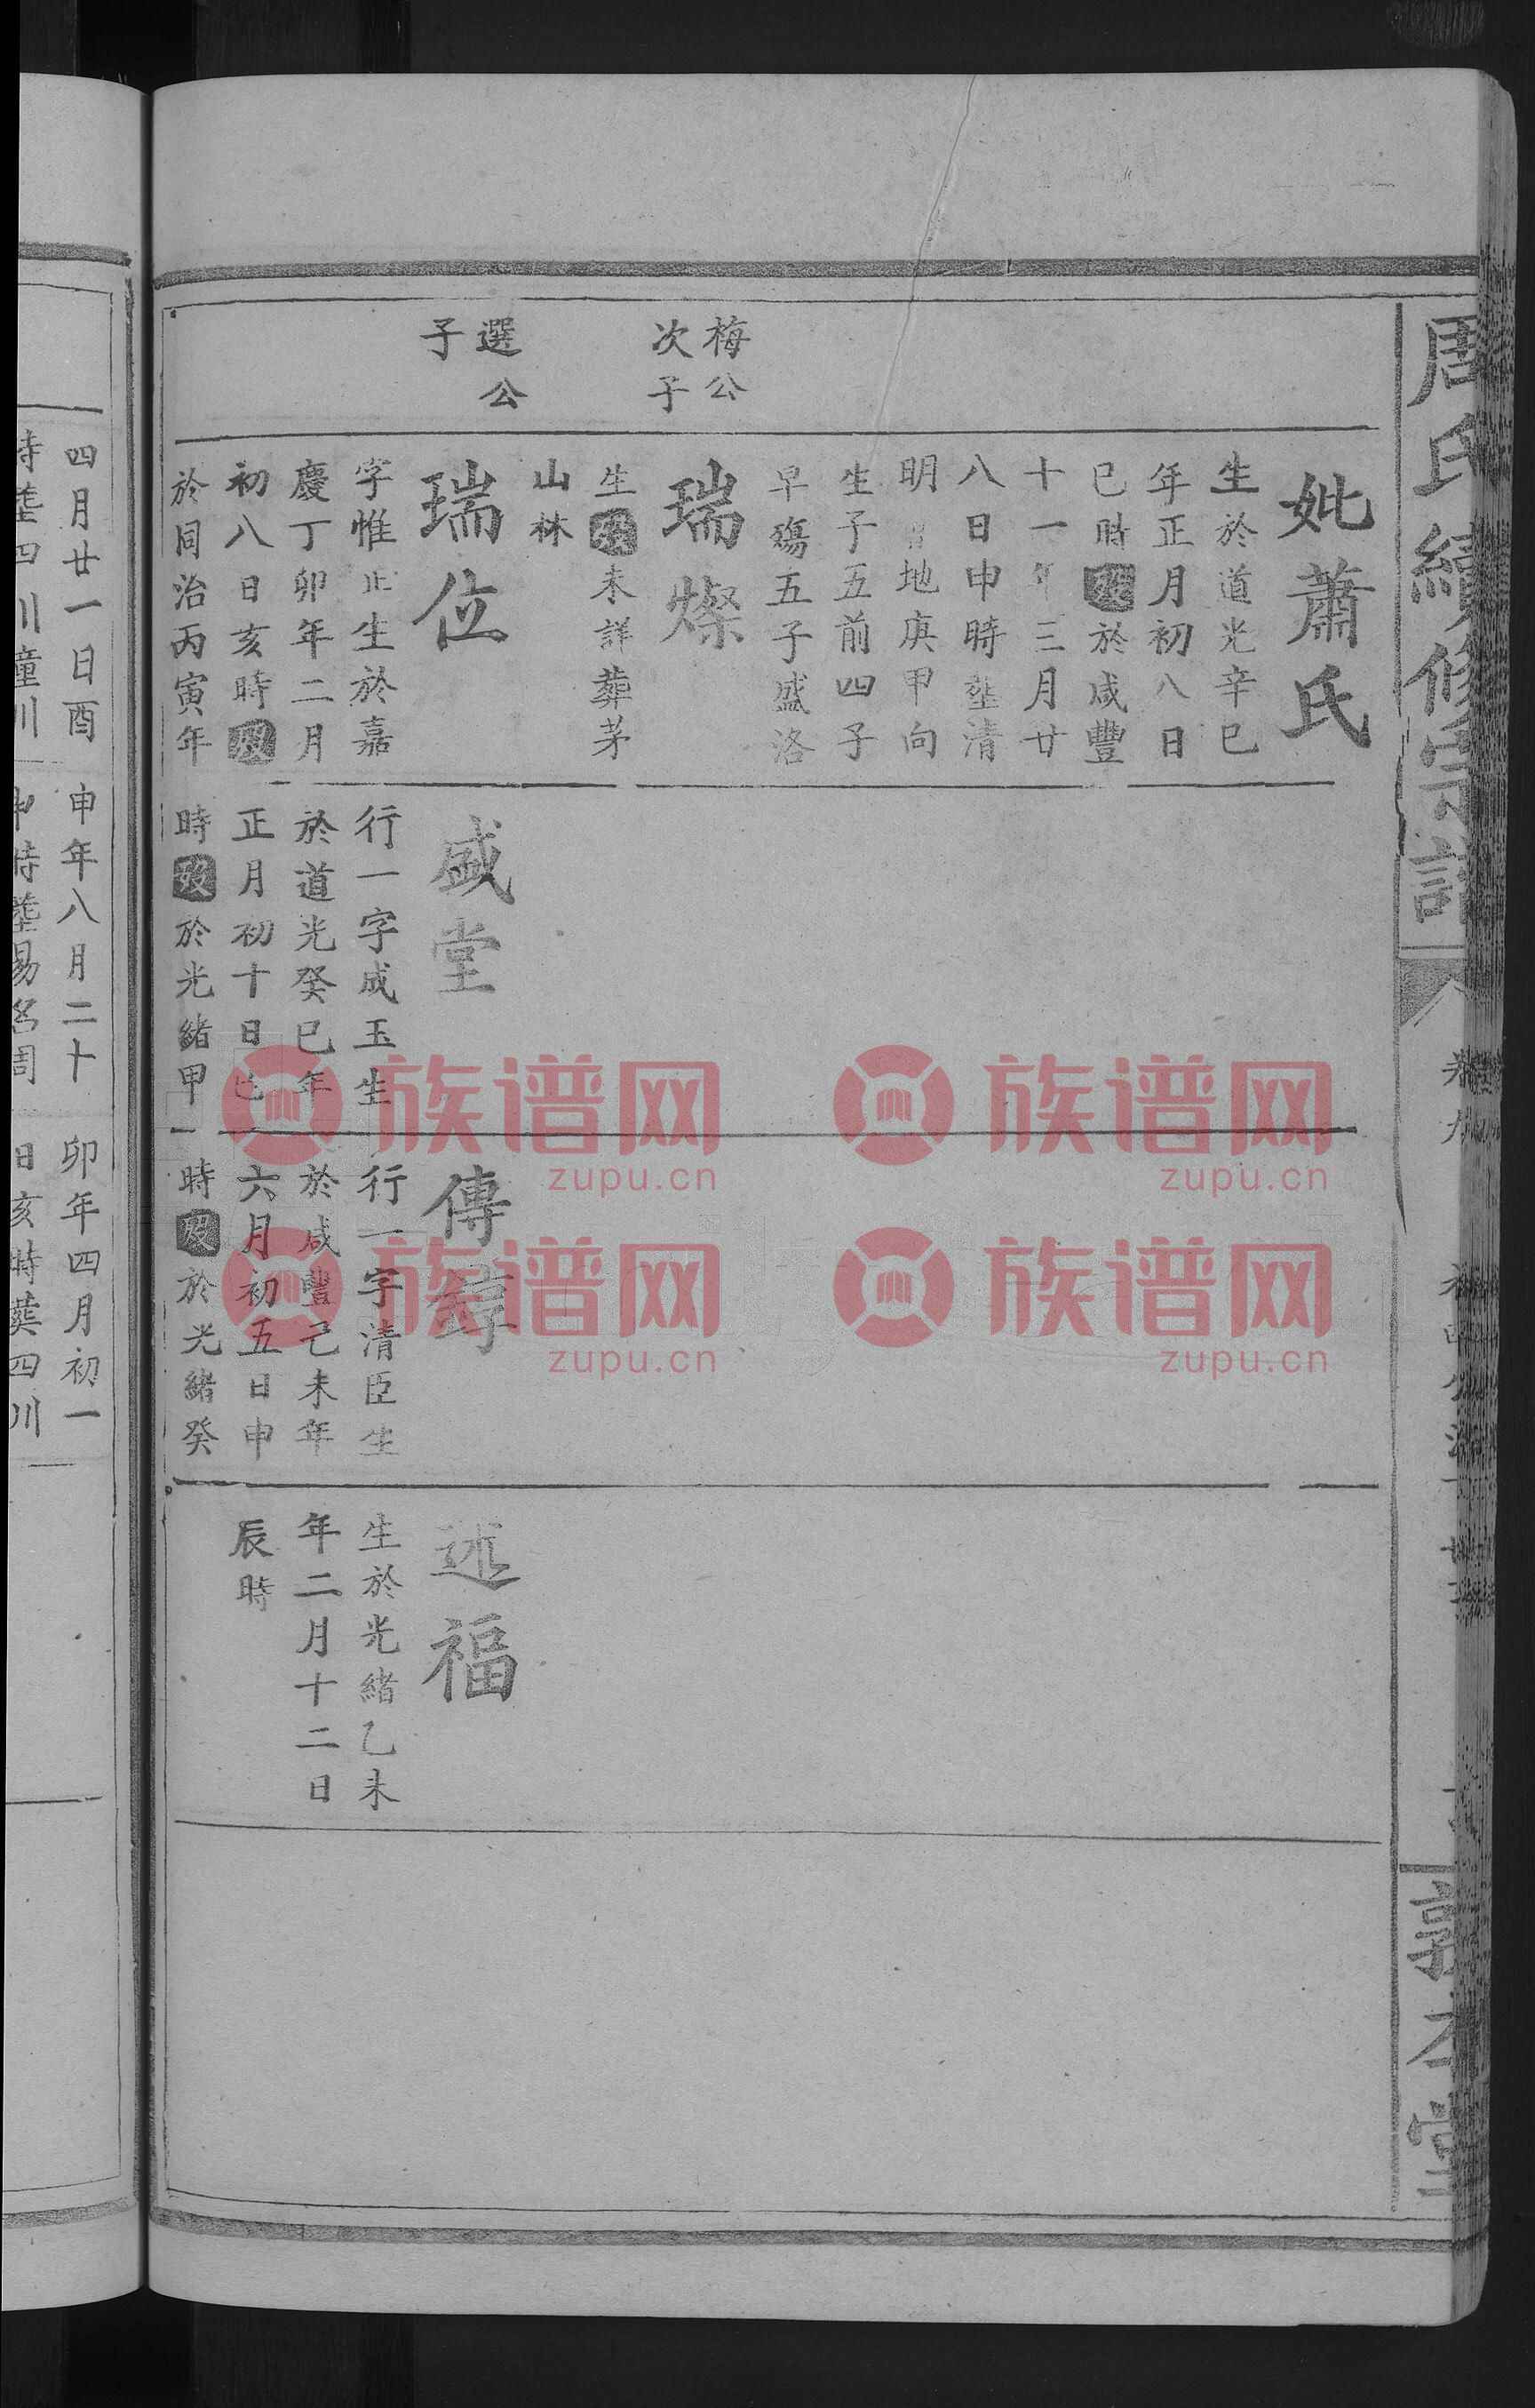 周氏續修宗譜
卷九
敦本堂
妣蕭氏
生於道光辛巳
年正月初八日
巳時歿於咸豐
十一年三月廿
八日申時塟清
明 地庚甲向
生子五前四子
早殤五子盛洛
梅公
次子
瑞燦
生歿未詳葬茅
山林
選公
子
瑞位
字惟止生於嘉
慶丁卯年二月
初八日亥時歿
於同治丙寅年
盛堂
行一字成玉生
於道光癸巳年
正月初十日巳
時歿於光緒甲
傳
行一字清臣生
於咸豐己未年
六月初五日申
時歿於光緒癸
述福
生於光緒乙未
年二月十二日
辰時
四月廿一日酉
時塟四川潼川
申年八月二十
申時塟易名周
卯年四月初一
日亥時葬四川
族谱网
zupu.cn
族谱网
zupu.cn
族谱网
zupu.cn
族谱网
zupu.cn